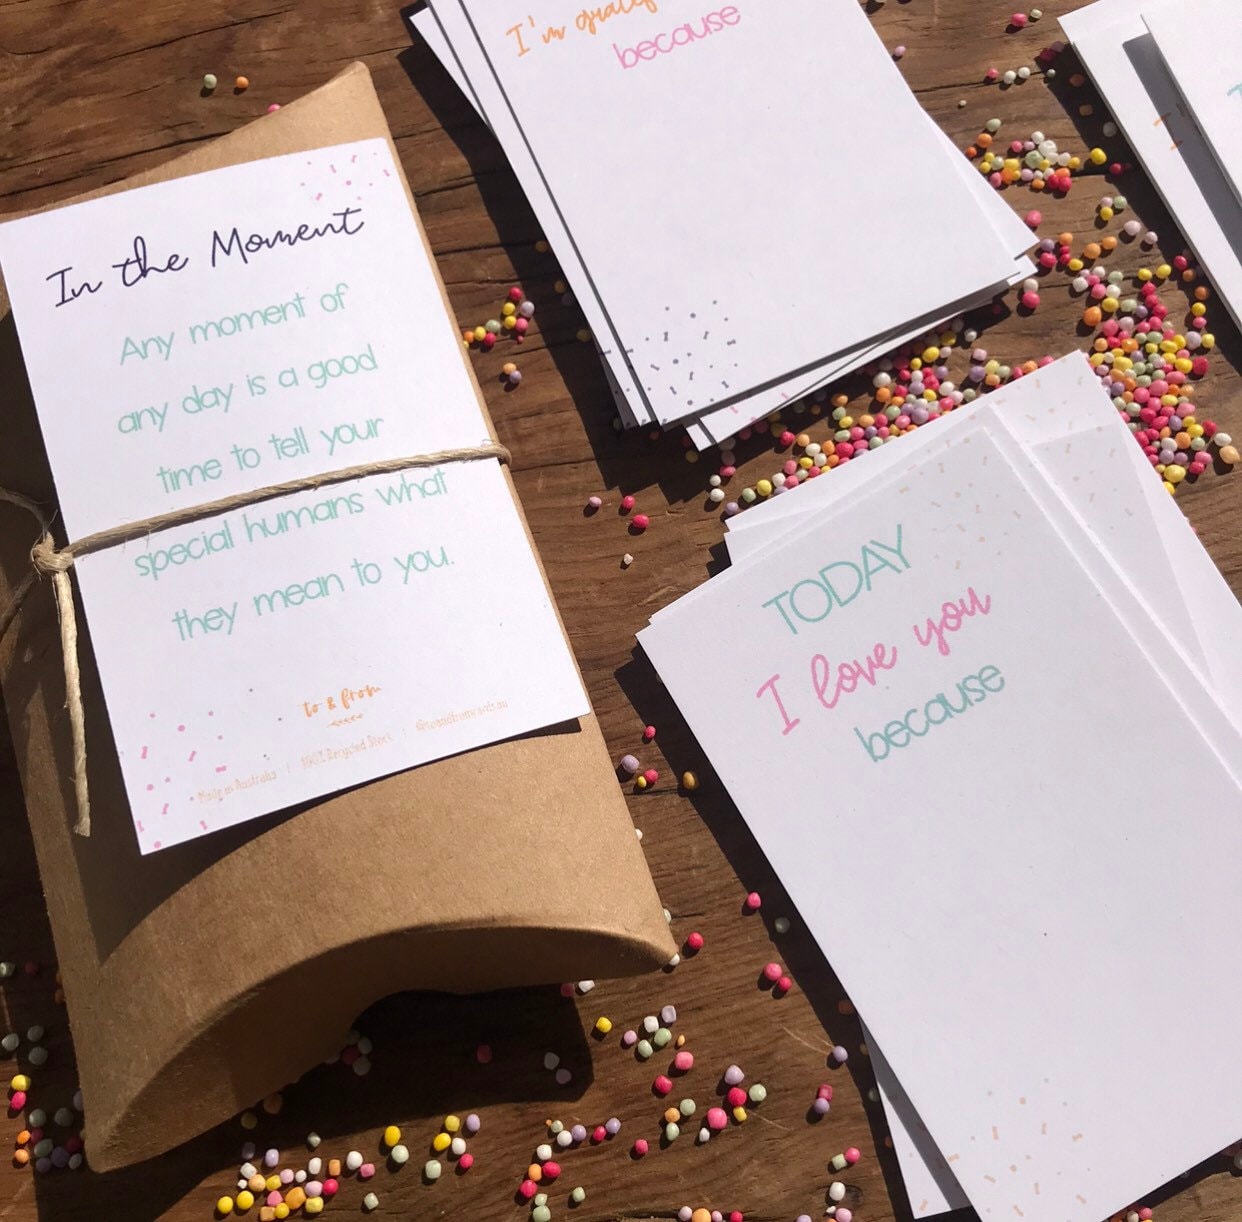 In the Moment
Any moment of
any day is a good
time to tell your
special humans what
they mean to you.
to & from
Made in Australia | 100% Recycled Stock | @toandfromcards.au
I'm
because
TODAY
I love you
because